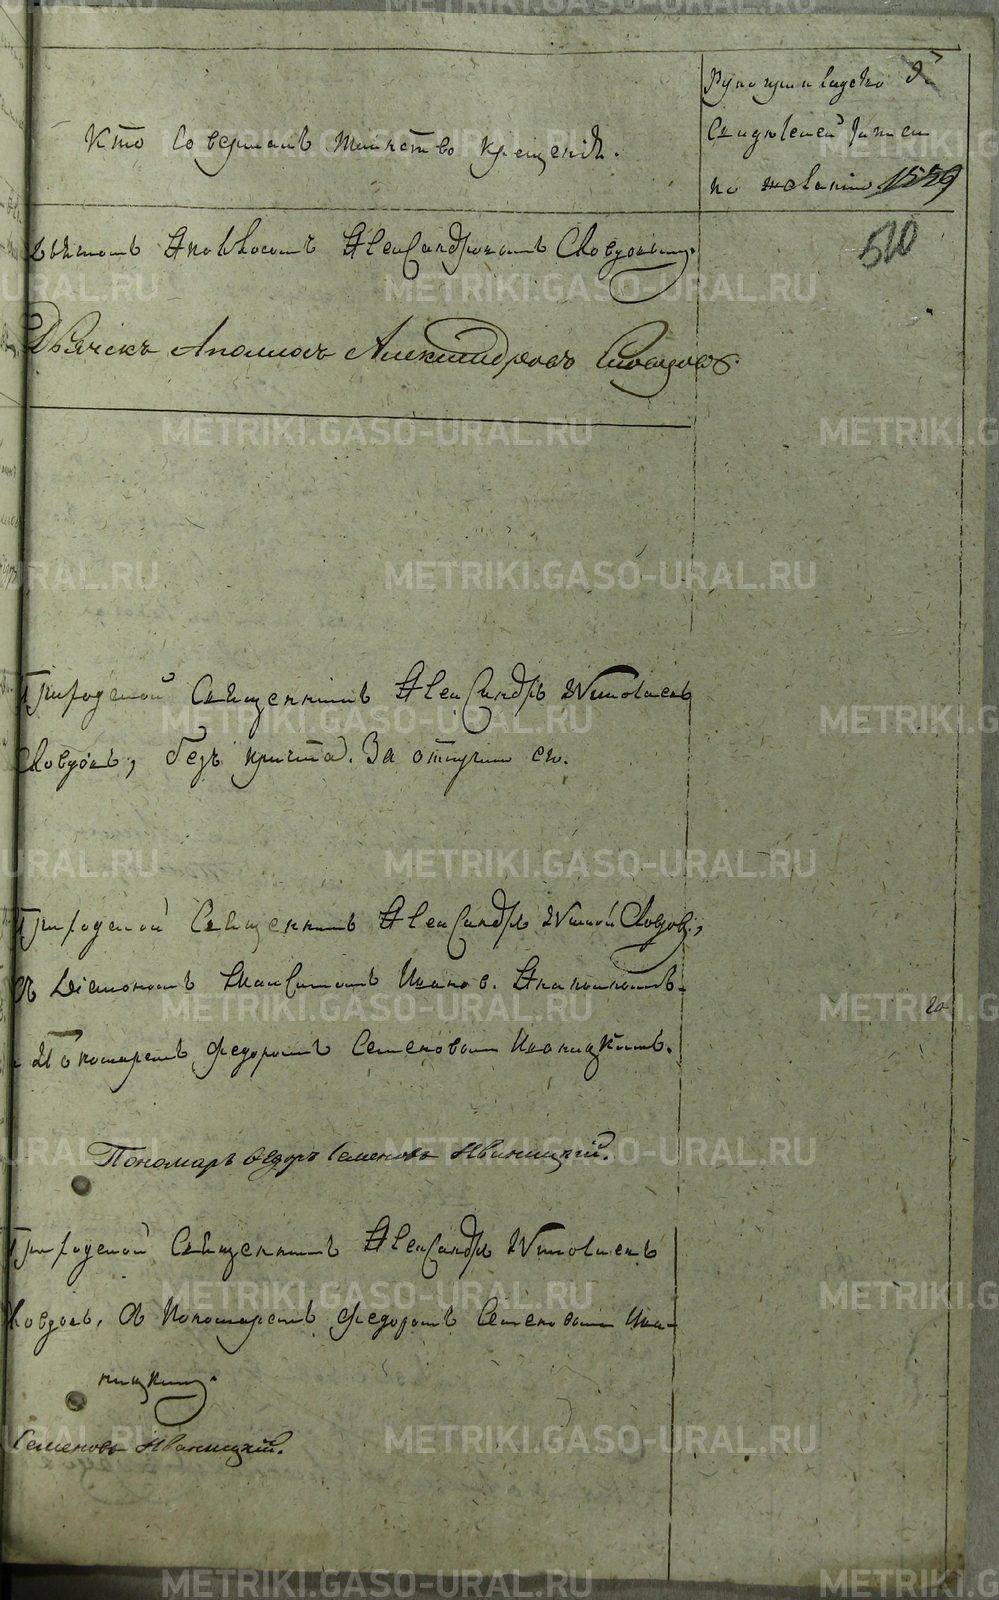 Кто совершалъ таинство крещенія.
Рукоприкладство
свидѣтелей записи
по желанію 1559
510
Аполлосомъ Александровымъ Словцовымъ.
Дьячекъ Аполлосъ Александровъ Словцовъ.
Приходской Священникъ Александръ Николаевъ
Словцовъ, безъ причта. За отлучкою его.
Приходской Священникъ Александръ Никол: Словцов:,
съ Діакономъ Иванов.
Пономаремъ Федоромъ Семеновымъ Иваницкимъ.
Пономарь Ѳедоръ Семеновъ Иваницкій.
Приходской Священникъ Александръ Николаевъ
Словцовъ, съ Пономаремъ Федоромъ Семеновымъ Ива-
ницкимъ.
Семеновъ Иваницкій.
METRIKI.GASO-URAL.RU